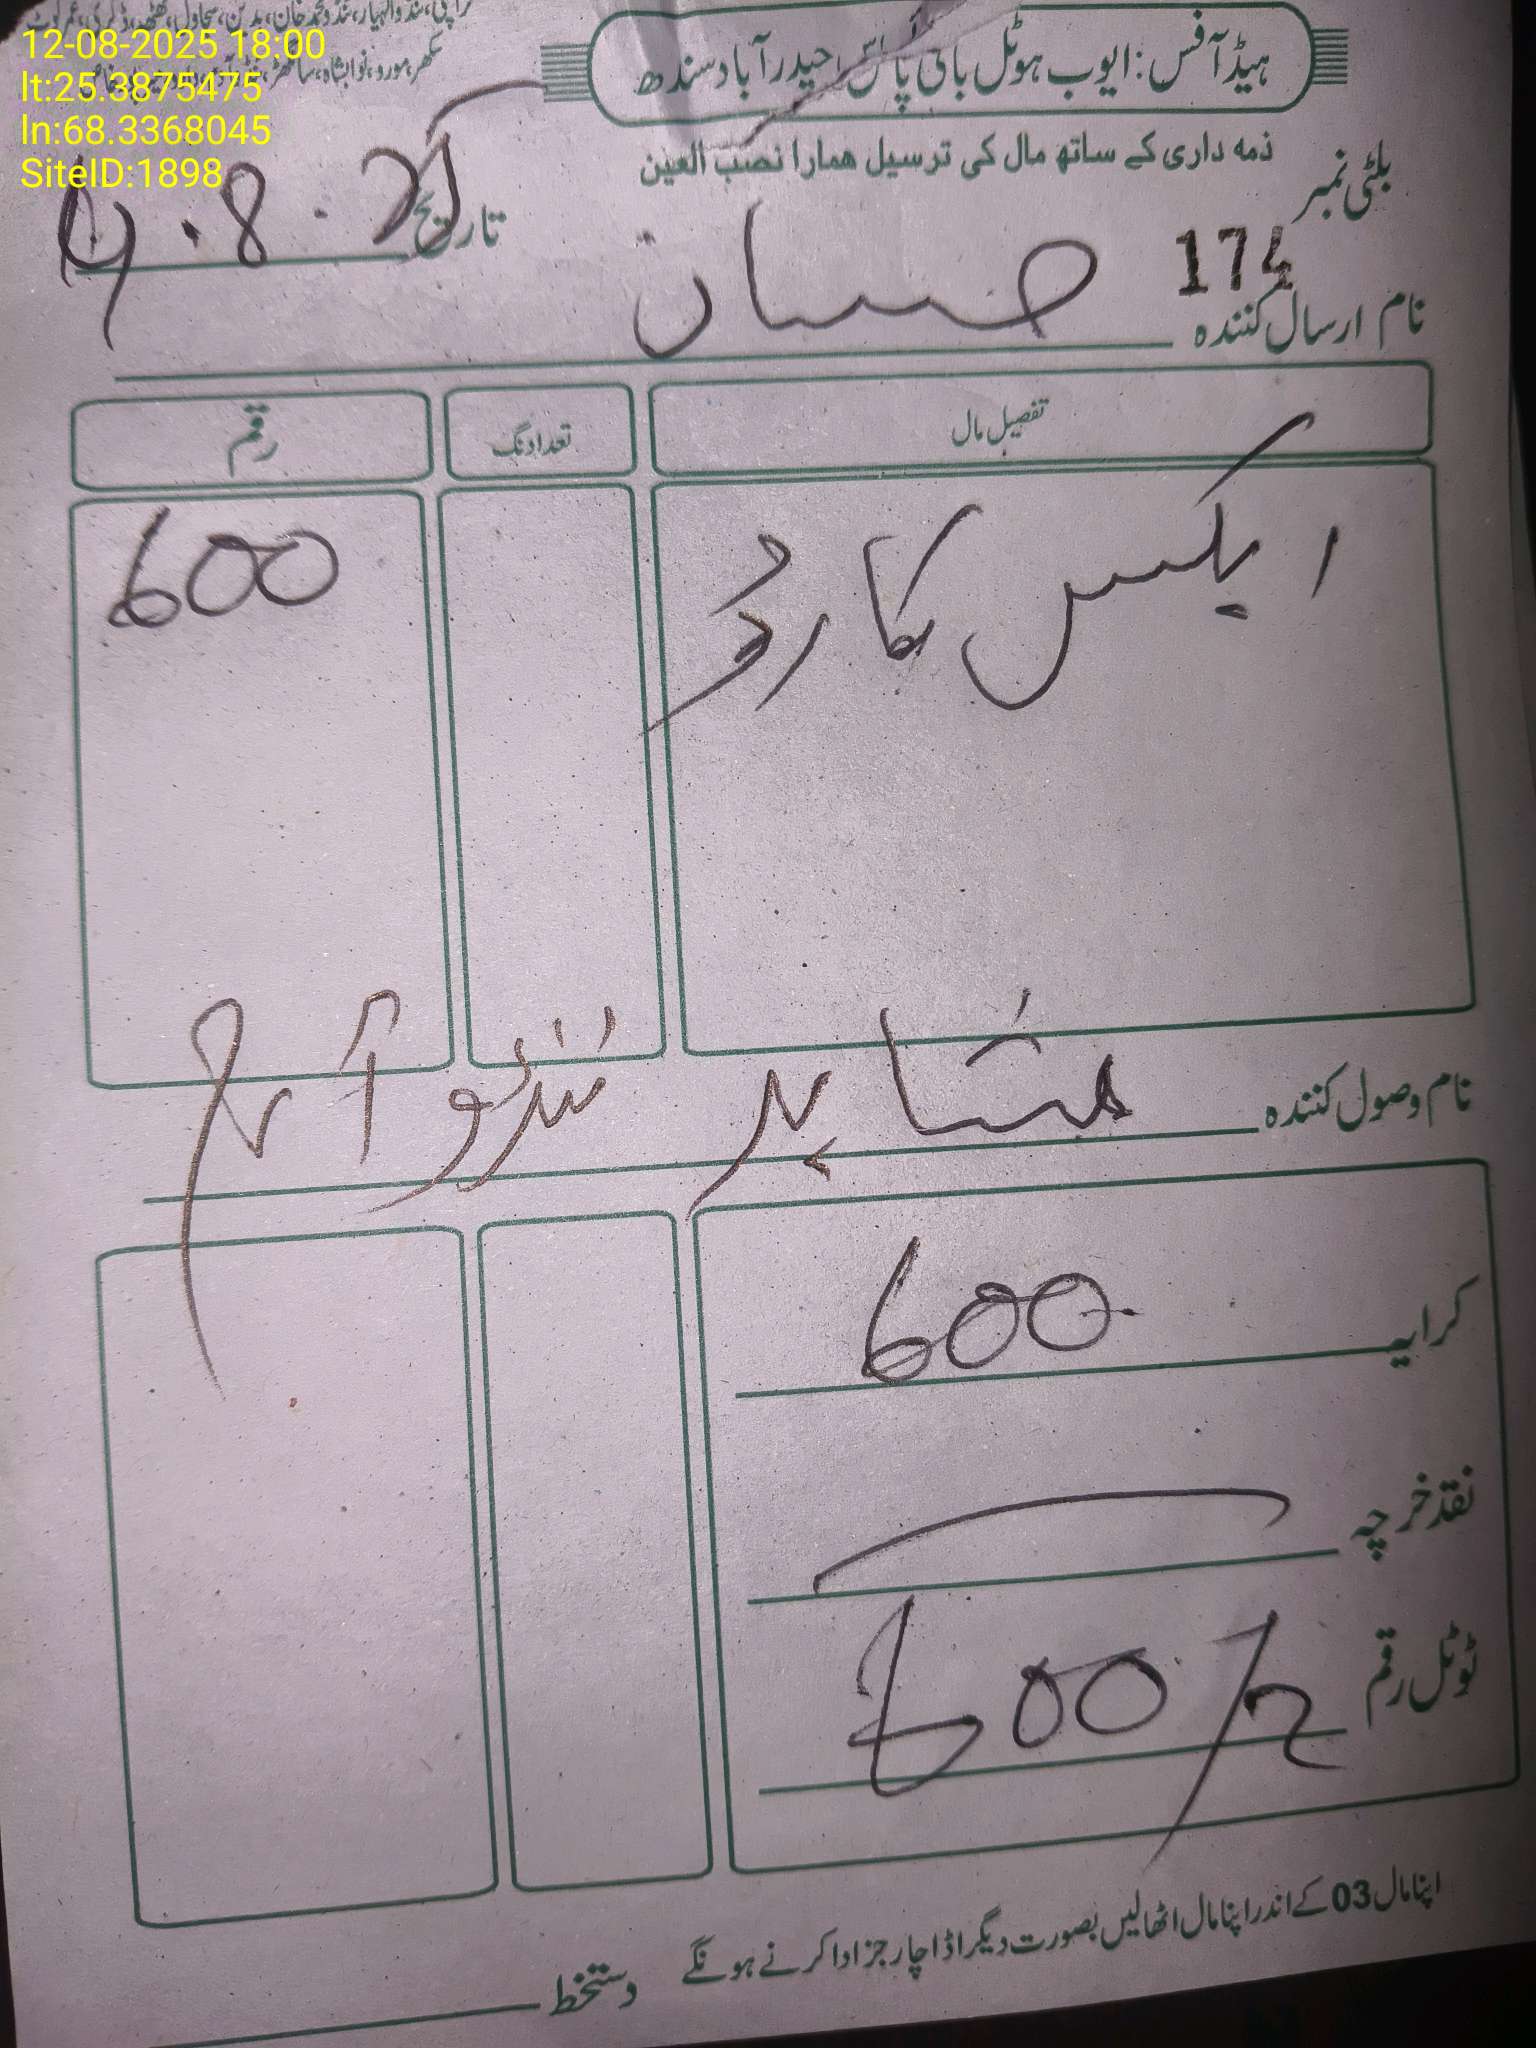 کراچی، ٹنڈوالہیار، ٹنڈو محمد خان، بدین، سجاول، ٹھٹھہ، ڈگری، عمرکوٹ
سکھر، مورو، نوابشاہ، سانگھڑ
12-08-2025 18:00
lt:25.3875475
ln:68.3368045
SiteID:1898
ہیڈ آفس: ایوب ہوٹل بائی پاس حیدرآباد سندھ
ذمه داری کے ساتھ مال کی ترسیل همارا نصب العین
بلٹی نمبر 174
تاریخ
نام ارسال کنندہ حسان
تفصیل مال تعداد نگ رقم
ایکس کارڈ 600
نام وصول کنندہ ٹنڈو آدم
کرایہ 600
نقد خرچہ
ٹوٹل رقم 600/
اپنا مال 03 کے اندر اپنا مال اٹھالیں بصورت دیگر اڈا چارجز ادا کرنے ہونگے
دستخط